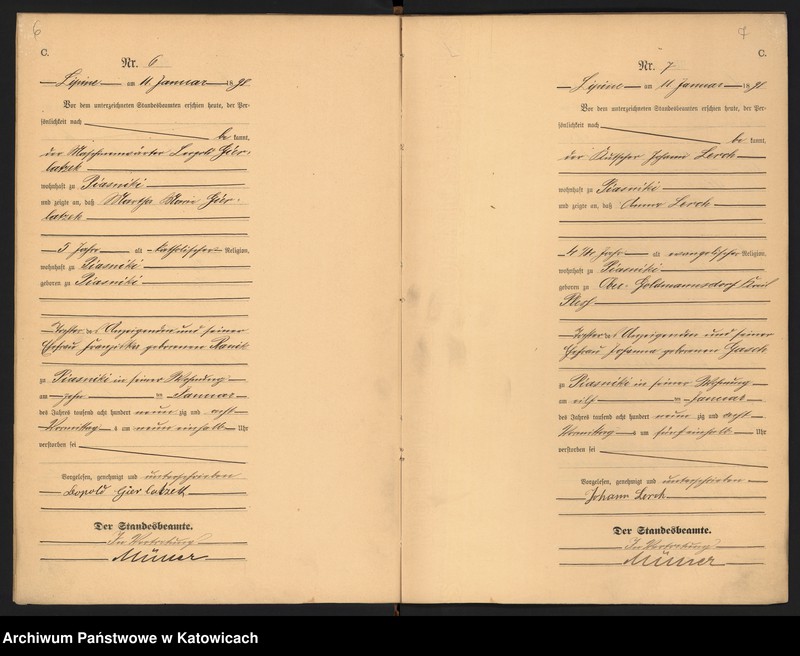 6
C.
Nr. 6
Lipine am 11 Januar 1898
Vor dem unterzeichneten Standesbeamten erschien heute, der Per-
sönlichkeit nach
be kannt,
der Maschinenwärter Leopold Gier-
latzek
wohnhaft zu Piasniki
und zeigte an, daß Martha Marie Gier-
latzek
5 Jahr alt katholischer Religion,
wohnhaft zu Piasniki
geboren zu Piasniki
Tochter des Anzeigenden und seiner
Ehefrau Franziska geborenen
zu Piasniki in seiner Wohnung
am zehn ten Januar
des Jahres tausend acht hundert neun zig und acht
Vormittag s um neun einhalb Uhr
verstorben sei
Vorgelesen, genehmigt und unterschrieben
Leopold Gierlatzek
Der Standesbeamte.
In Vertretung
7
C.
Nr. 7
Lipine am 11 Januar 1898
Vor dem unterzeichneten Standesbeamten erschien heute, der Per-
sönlichkeit nach
be kannt,
der Kutscher Johann Lerch
wohnhaft zu Piasniki
und zeigte an, daß Anna Lerch
4 Jahr alt evangelischer Religion,
wohnhaft zu Piasniki
geboren zu Ober-Goldmannsdorf Kreis
Pless
Tochter des Anzeigenden und seiner
Ehefrau Johanna geborenen
zu Piasniki in seiner Wohnung
am elf ten Januar
des Jahres tausend acht hundert neun zig und acht
Vormittag s um fünf einhalb Uhr
verstorben sei
Vorgelesen, genehmigt und unterschrieben
Johann Lerch
Der Standesbeamte.
In Vertretung
Archiwum Państwowe w Katowicach